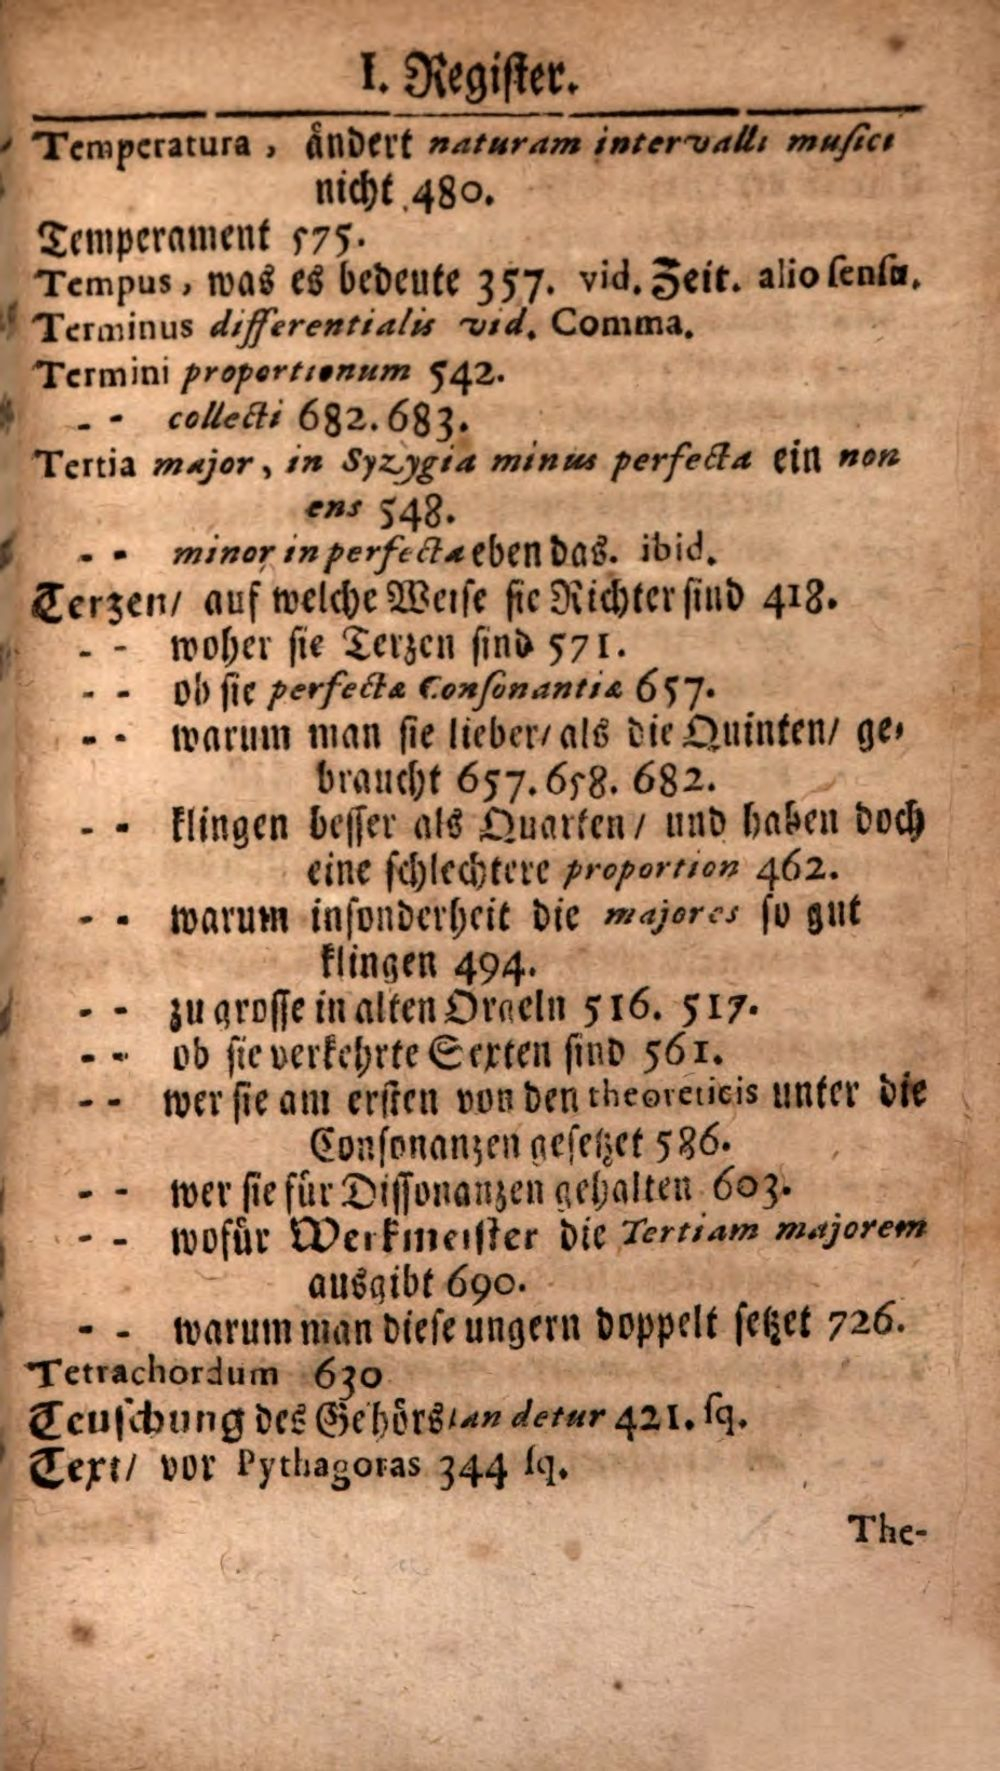 I. Regiſter.
Temperatura, aͤndert naturam intervalli muſici
nicht 480.
Temperament 575.
Tempus, was es bedeute 357. vid. Zeit. alio ſenſu.
Terminus differentialis vid. Comma.
Termini proportionum 542.
- - collecti 682. 683.
Tertia major, in Syzygia minus perfecta ein non
ens 548.
- - minor in perfecta eben das. ibid.
Terzen/ auf welche Weiſe ſie Richter ſind 418.
- - woher ſie Terzen ſind 571.
- - ob ſie perfectæ Conſonantiæ 657.
- - warum man ſie lieber/ als die Quinten/ ge-
braucht 657. 658. 682.
- - klingen beſſer als Quarten/ und haben doch
eine ſchlechtere proportion 462.
- - warum inſonderheit die majores ſo gut
klingen 494.
- - zu groſſe in alten Orgeln 516. 517.
- - ob ſie verkehrte Sexten ſind 561.
- - wer ſie am erſten von den theoreticis unter die
Conſonanzen geſetzet 586.
- - wer ſie fuͤr Diſſonanzen gehalten 603.
- - wofuͤr Werkmeiſter die Tertiam majorem
ausgibt 690.
- - warum man dieſe ungern doppelt ſetzet 726.
Tetrachordum 630
Teuſchung des Gehoͤrs/ an detur 421. ſq.
Text/ vor Pythagoras 344 ſq.
The-